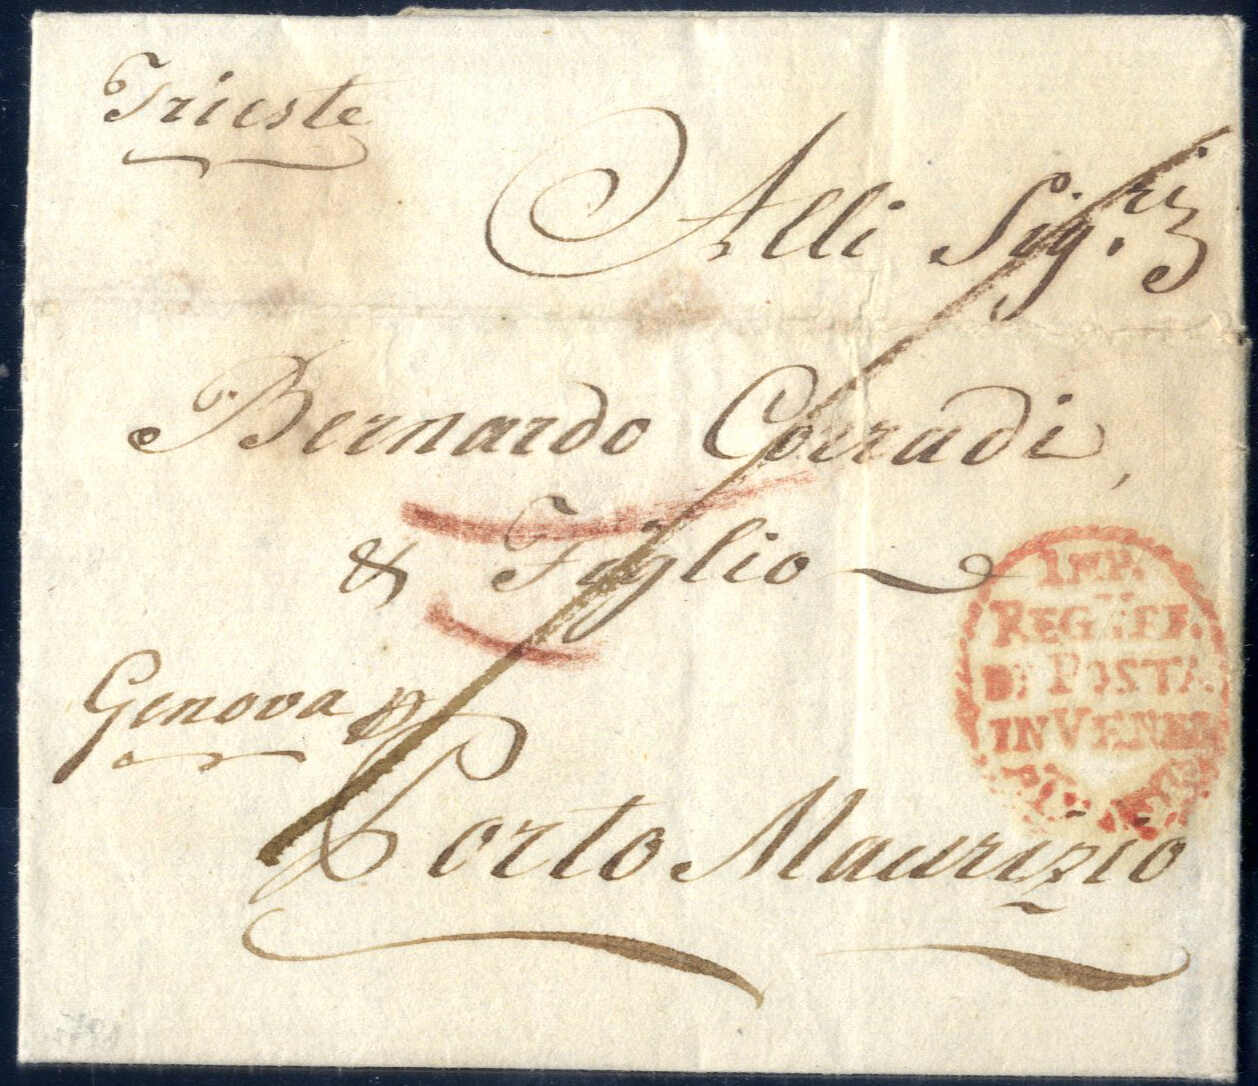 Trieste
Alli Sig.ri
Bernardo Corradi,
& Figlio
Genova p
Porto Maurizio
IMP.
REG. UFF.
DI POSTA
IN VENEZ